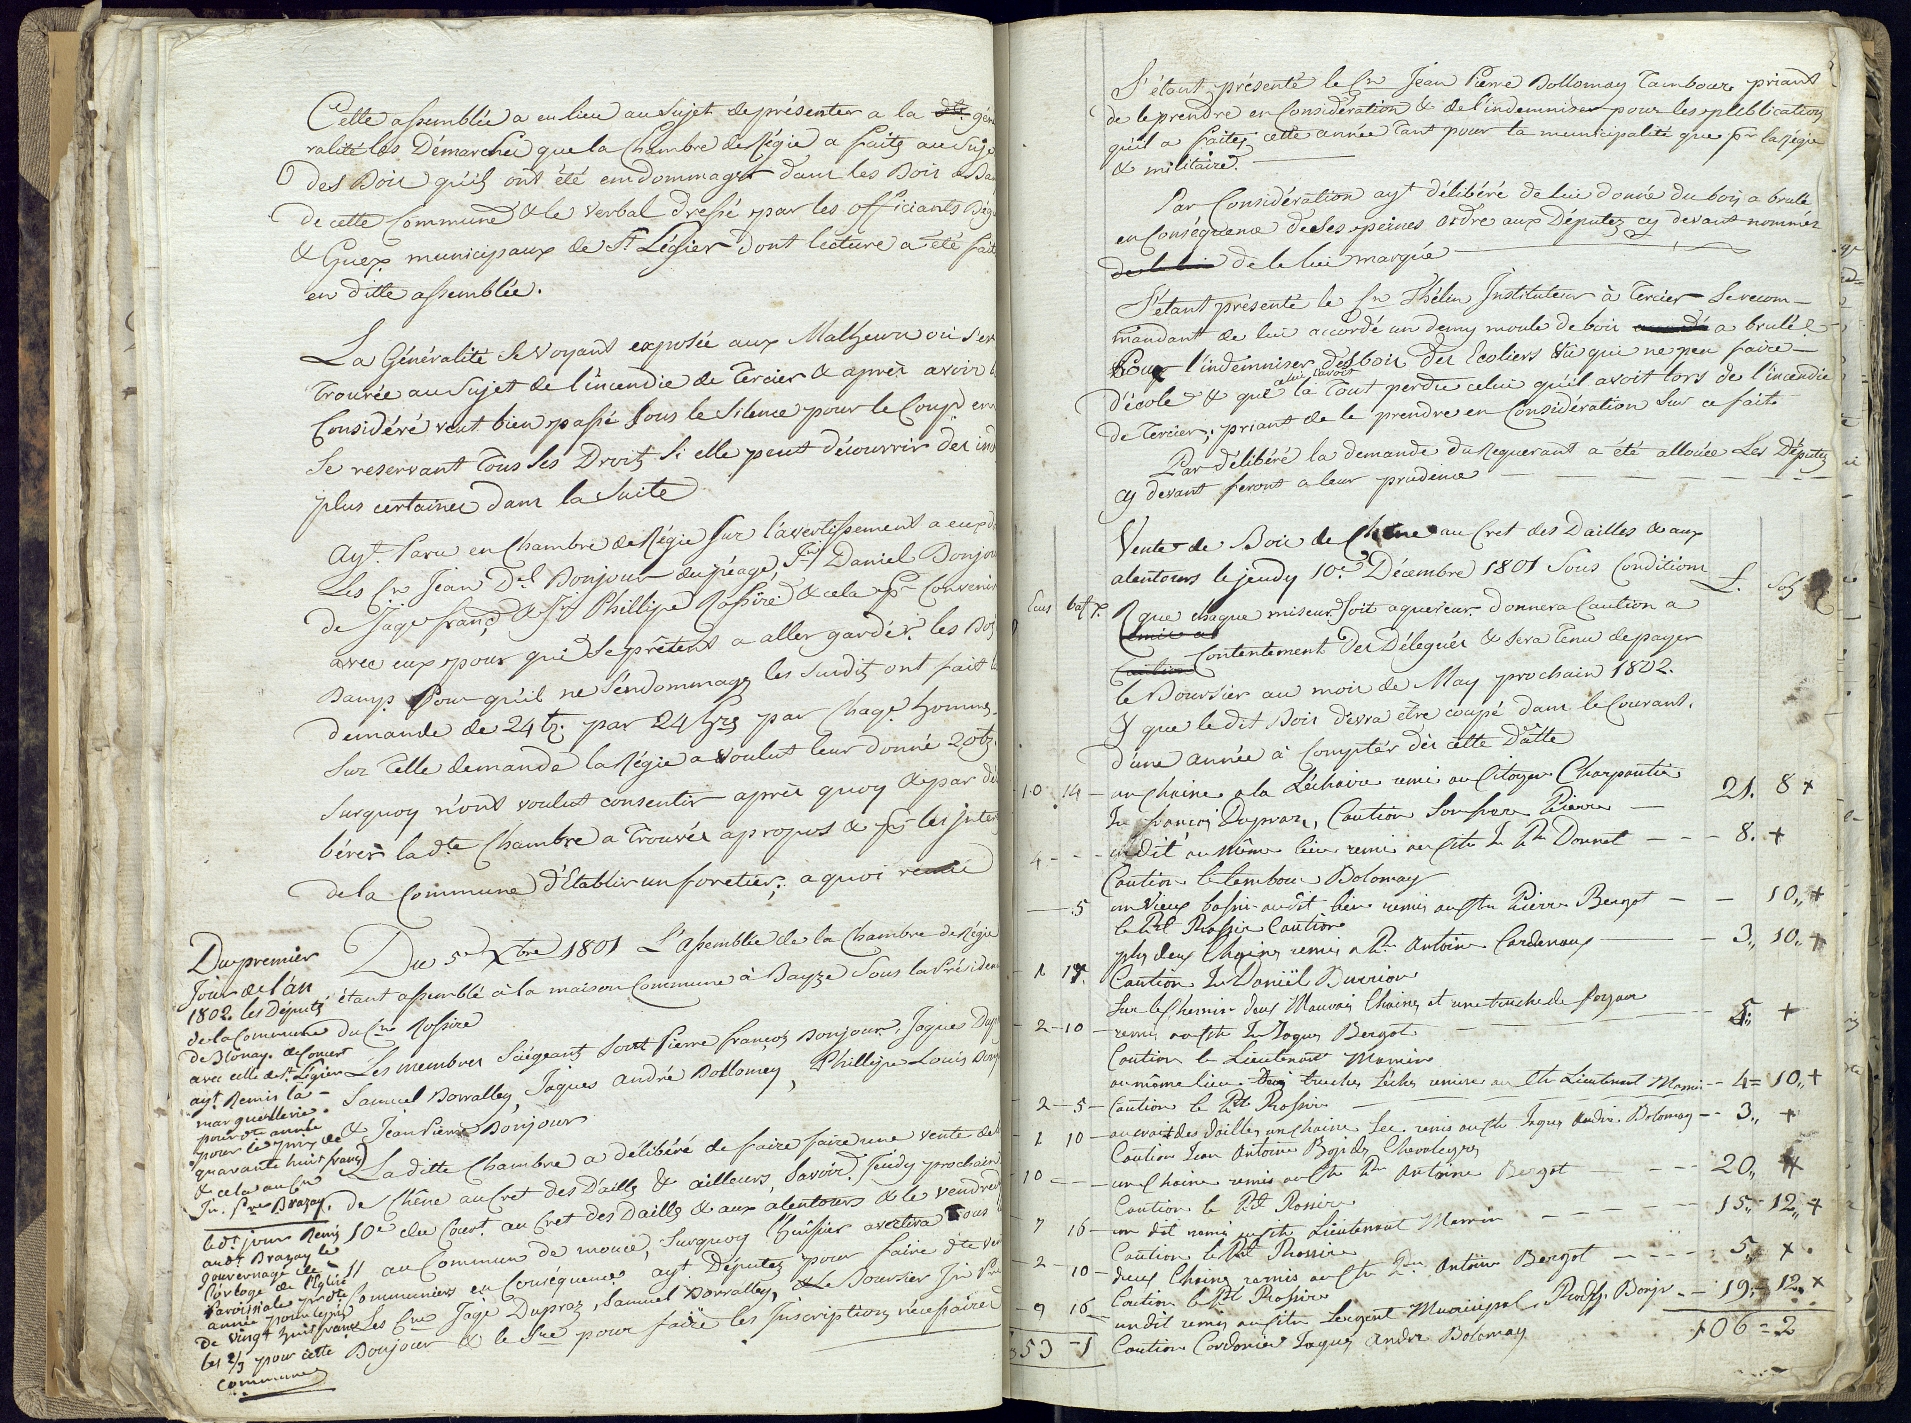 Cette assemblée a eu lieu au sujet de présenter a la gén
ralité les Démarches que la Chambre de Régie a faits au Suje
des Bois qu'ils ont été emdommagés dans les Bois a Ba
de cette Commune & le verbal dressé par les officiants Rég
& Guex municipaux de St Légier dont lecture a été fait
en ditte assemblée.
La Généralité se voyant exposée aux Malheurs où s'en
trouvée au sujet de l'incendie de Tercier & après avoir
Considéré veut bien passé sous le Silence pour le Coup en
se reservant tous ses Droits si elle peut découvrir des ind
plus certaines dans la Suite
Ayt Paru en Chambre de Régie sur l'avertissement a eux d
Les Cns Jean Dl Bonjour du péage, Jn Daniel Bonjou
de Jaqe franç & Jn Phillipe Rossire & cela pr Convenir
avec eux pour qui se prêtent a aller gardér les Boi
Bamp. Pour qu'il ne s'endommage les susdits ont fait l
demande de 24 bz. par 24 hrs par Chaqe homme.
Sur telle demande la Régie a voulut leur donné 20 bz.
Surquoy n'ont voulut consentir après quoy & par dé
bérés la dte Chambre a trouvée apropos & pr les Inter
de la Commune d'Etablir un foretier; a quoi remie
Du 5e Xbre 1801 L'assemblée de la Chambre de Régie
étant assemblé à la maison Commune à Bayze Sous la Présiden
du Cn Rossire
Les membres Siégeants sont Pierre françois Bonjour, Jaques Dup
Samuel Borralley, Jaques andré Bollomey, Phillipe Louis Bonj
& Jean Pierre Bonjour
La ditte Chambre a delibéré de faire faire une vente de b
de Chêne au Cret des Dailles & ailleurs, Savoir Jeudy prochain
10e du Court. au Cret des Dailles & aux alentours & le vendre
au Commun de mouie, Surquoy l'huissier avertira tous
Communiers en Conséquence ayt Députez pour faire dte ve
Les Cns Jaqe Dupraz, Samuel Borralley, & le Boursier Jn Pre
Bonjour & le Sre pour faire les Inscriptions nécessaires
Du premier
Jour de l'an
1802. les Députés
de la Commune
de Blonay. de Concert
avec celle de St Légier
ayt Remis la
marguellerie.
pour dte année
pour le prix de
quarante huit francs
& cela au Cn
Jn. Pre Brazay.
le dt jour Remis
aud. Brazay le
gouvernage de
l'orloge de l'Eglise
Paroissiale pr dte
année pour le prix
de vingt huit francs
les 2/3 pour cette
Commune
S'étant présenté le Cn Jean Pierre Bollomay Tambour priant
de le prendre en Considération & de l'indemniser pour les publications
quil a faites cette année tant pour la municipalité que pr la Régie
& militaire.
Par Considération ayt délibéré de lui donné du bois a brulé
en Conséquence de ses peines ordre aux Députez cy devant nommés
de le lui marqué
S'étant présenté le Cn Thélin Instituteur à Tercier se recom-
mandant de lui accordé un demy moule de bois a brulé
Pour l'indemniser des bois des Ecoliers Vû qui ne peu faire
d'école & que la tout perdu celui qu'il avoit lors de l'incendie
de Tercier; priant de le prendre en Considération sur ce fait
Par délibéré la demande du Requerant a été allouée Les Députez
cy devant feront a leur prudence
Vente de Bois de Chêne au Cret des Dailles & aux
alentours le jeudy 10e Décembre 1801 Sous Conditions
que chaque miseur soit aquereur donnera Caution a
Contentement des Délégués & sera tenu de payer
le Boursier au mois de May prochain 1802.
Et que le dit Bois devra etre coupé dans le Courant.
d'une année à Comptér dès cette Datte
Ecus batz L. Sols
10 14 un chaine a la Léchaire remis au Citoyen Charpantié 21. 8 +
Jn françois Dupraz, Caution Son frere Pierre
4 - - un dit au même lieu remis au Citn Jn Pre Donnet - - - 8. +
Caution le tambour Bolomay
5 un vieux bossu audit lieu remis au Citn Pierre Bergot - - 10,, +
le Pt Rossire Caution
1 17. plus deux Chaines remis a Pre Antoine Cardenaux - 3,, 10,, +
Caution Jn Daniël Ducrion
Sur le Chemin deux Mauvais Chaines et une truche de foyaux
2 - 10 - remis au Citn Jn Jaques Bergot 5,, +
Caution le Lieutenant Mamin
au même lieu trois truches Séches remise au Citn Lieutenant Mamin - - 4 = 10,, +
2 - 5 - Caution le Pt Rossire
1 10 - au crait des dailles un chaine Sec remis au Citn Jaques Andre Bolomay - - 3,, +
Caution Jean Antoine
10 - - un Chaine remis au Citn Pre Antoine Bergot - - - 20,, +
Caution le Pt Rossire
7 16 - un dit remis au Citn Lieutenant Mamin 15,, 12,, +
Caution le Pt Rossire
2 - 10 - deux Chaines remis au Citn Pre Antoine Bergot 5,, +
Caution le Pt Rossire
9 16 - un dit remis au Citn Sergent Municipal Rodh. Bonjr. - 19,, 12,, +
Caution Cordonier Jaques Andre Bolomay 106 = 2
53 - 1